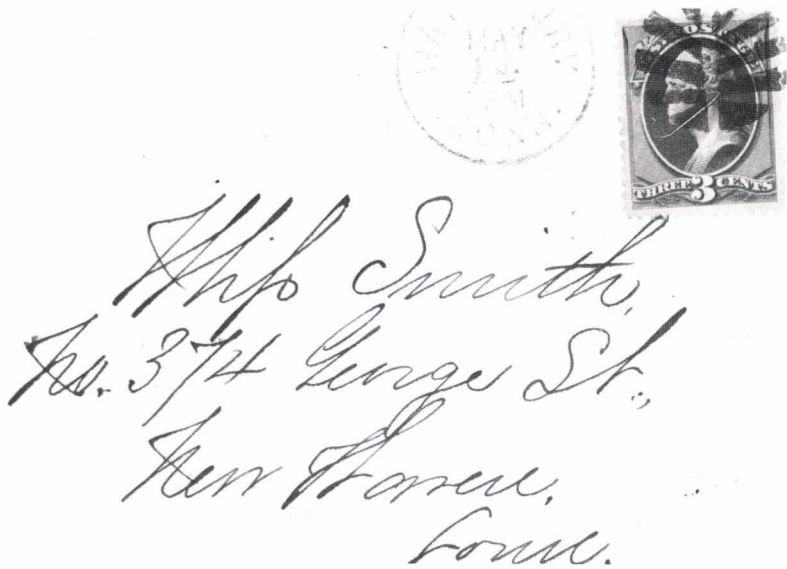 MAY
14
CONN.
U.S. POSTAGE
THREE 3 CENTS
Miss Smith,
No. 374 George St.,
New Haven,
Conn.